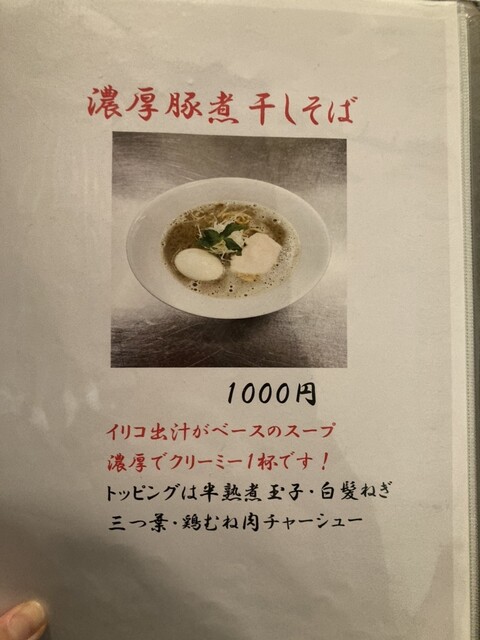 濃厚豚煮干しそば
1000円
イリコ出汁がベースのスープ
濃厚でクリーミー1杯です!
トッピングは半熟煮玉子・白髪ねぎ
三つ葉・鶏むね肉チャーシュー